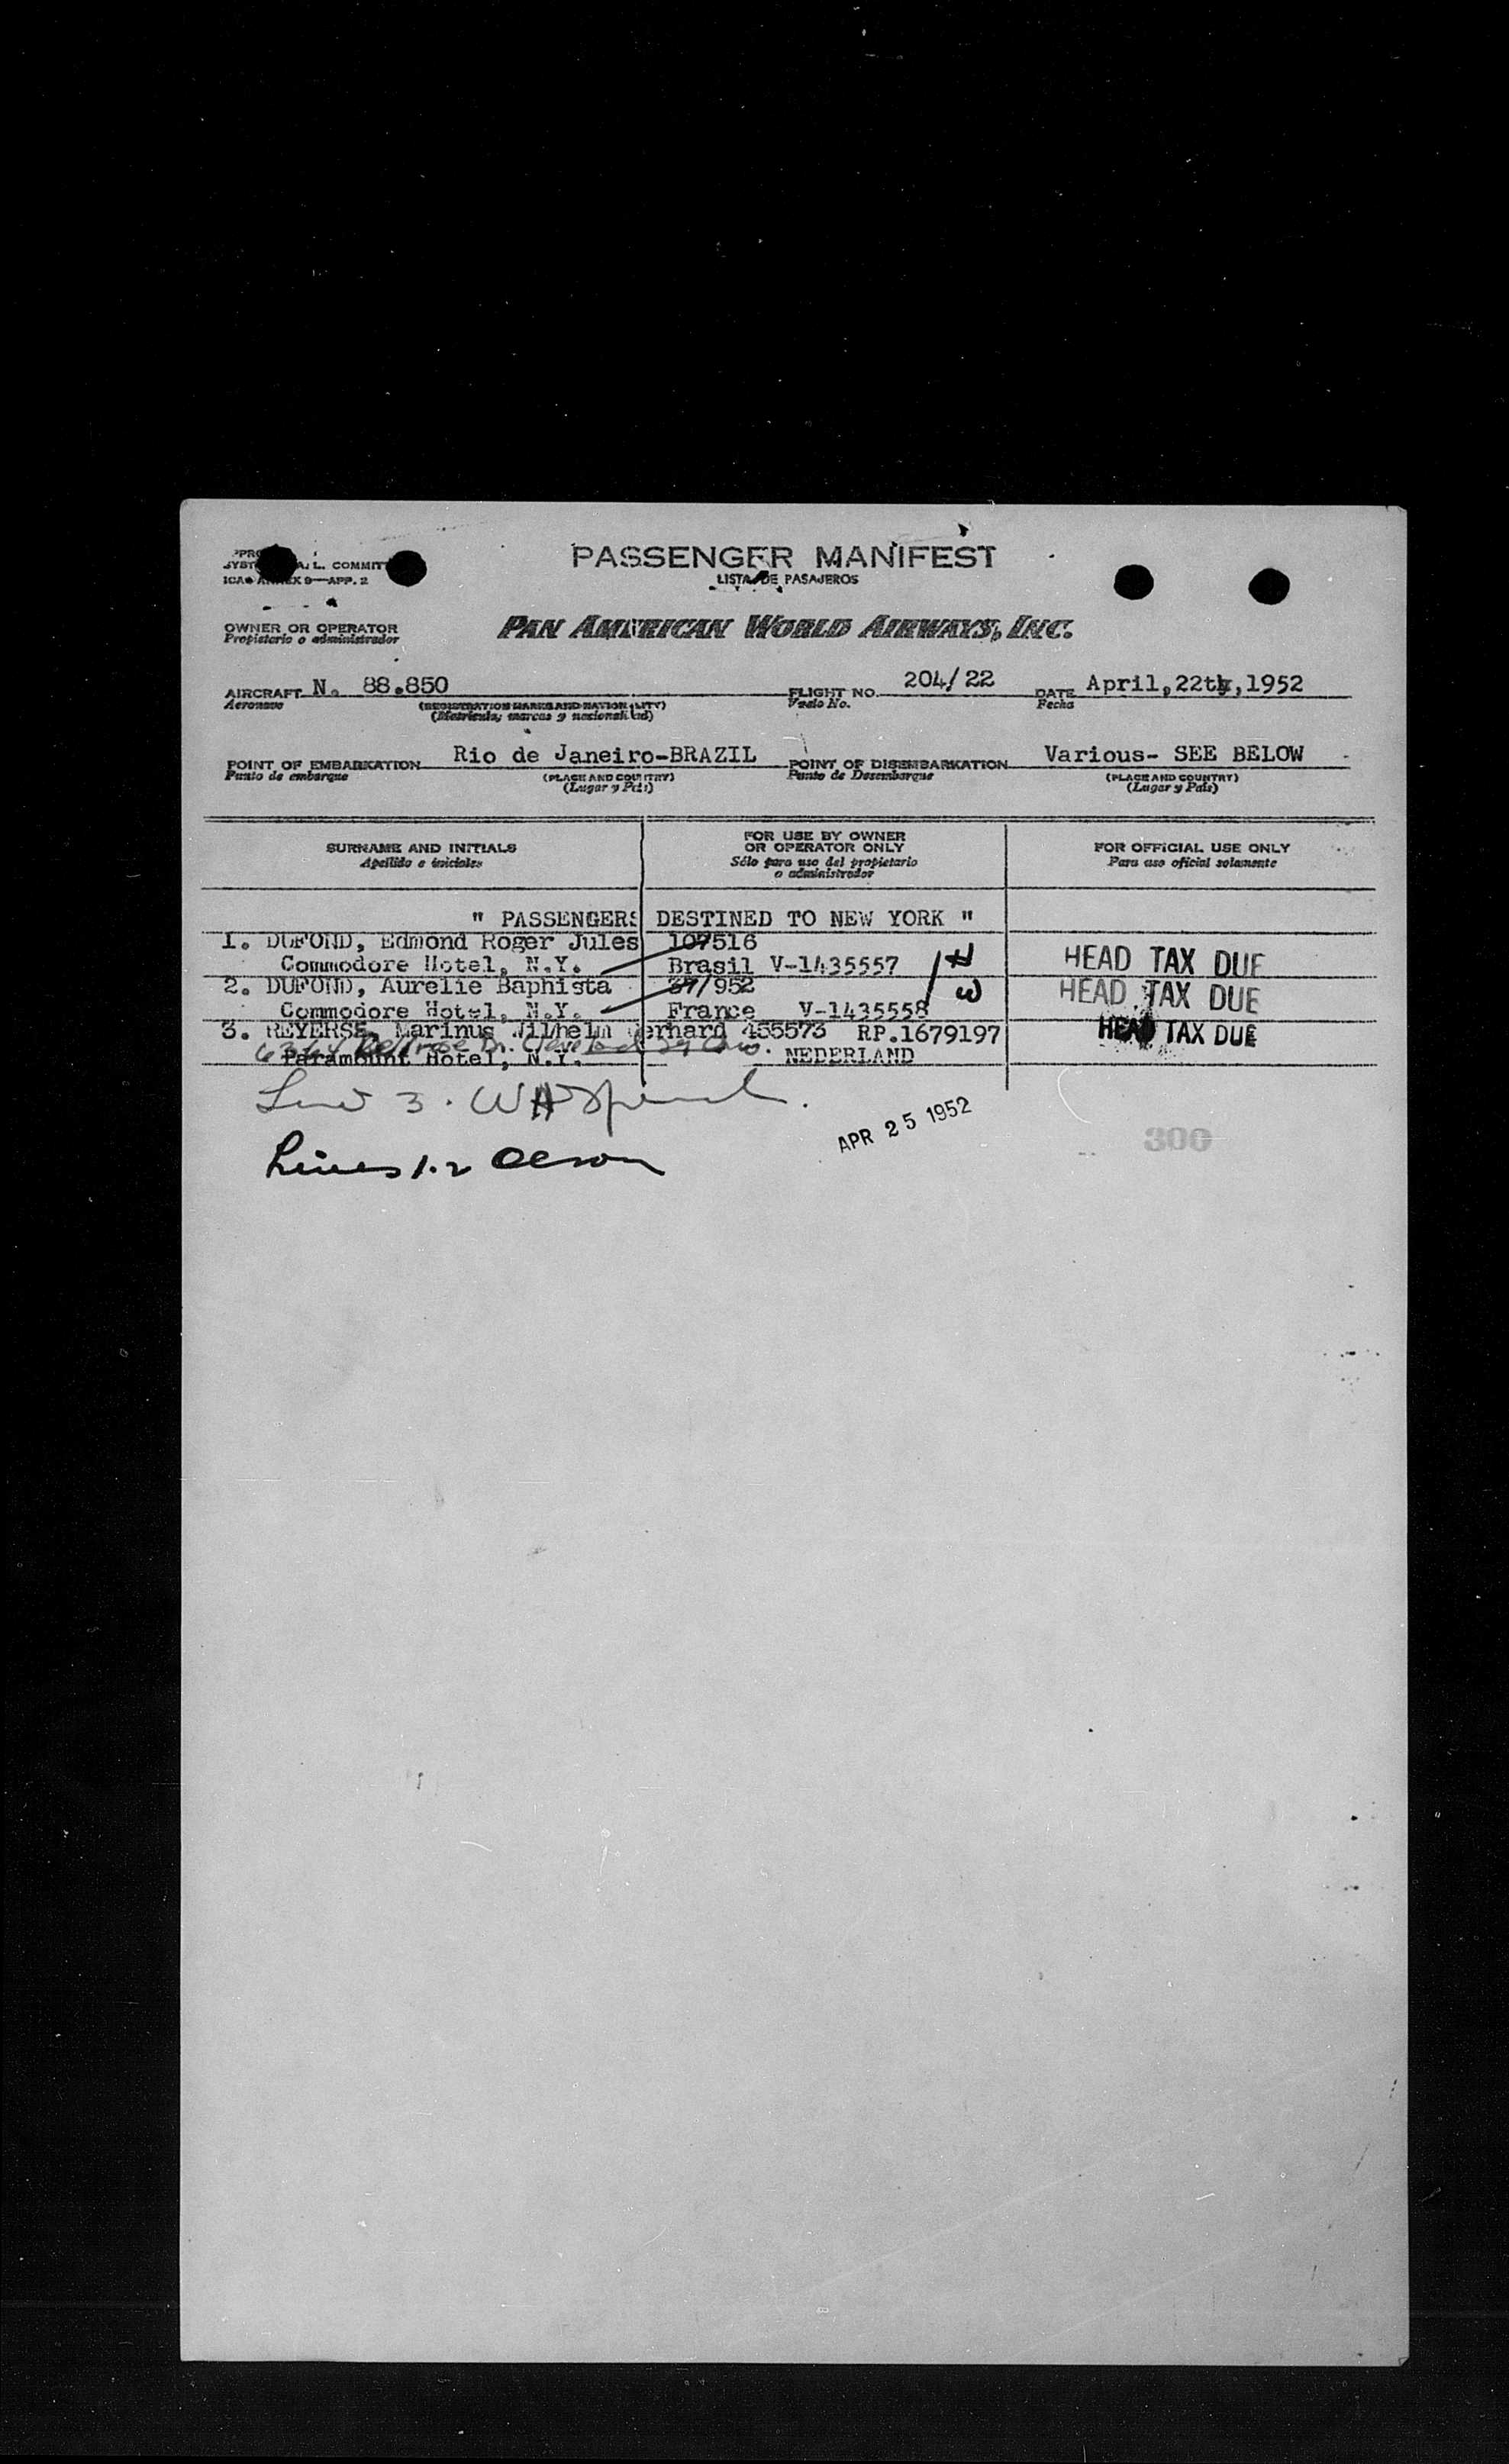 PASSENGER MANIFEST
LISTA DE PASAJEROS
L. COMMITT
ICAO ANNEX 9—APP. 2
OWNER OR OPERATOR
Propietario o administrador
PAN AMERICAN WORLD AIRWAYS, INC.
AIRCRAFT N. 88.850 FLIGHT NO. 204/22 DATE April,22th,1952
Aeronave (REGISTRATION MARKS AND NATIONALITY) Vuelo No. Fecha
(Matricula, marcas y nacionalidad)
POINT OF EMBARKATION Rio de Janeiro-BRAZIL POINT OF DISEMBARKATION Various- SEE BELOW
Punto de embarque (PLACE AND COUNTRY) Punto de Desembarque (PLACE AND COUNTRY)
(Lugar y País) (Lugar y País)
SURNAME AND INITIALS FOR USE BY OWNER OR OPERATOR ONLY FOR OFFICIAL USE ONLY
Apellido e iniciales Sólo para uso del propietario o administrador Para uso oficial solamente
" PASSENGERS DESTINED TO NEW YORK "
1. DUFOND, Edmond Roger Jules 107516
Commodore Hotel, N.Y. Brasil V-1435557 H HEAD TAX DUE
2. DUFOND, Aurelie Baphista 37/952 W HEAD TAX DUE
Commodore Hotel, N.Y. France V-1435558
3. REYERSE, Marinus Wilhelm Gerhard 455573 RP.1679197 HEAD TAX DUE
Dr. Cleveland 29 Ohio.
Paramount Hotel, N.Y. NEDERLAND
Line 3. WH
APR 25 1952
300
Lines 1.2 Olson